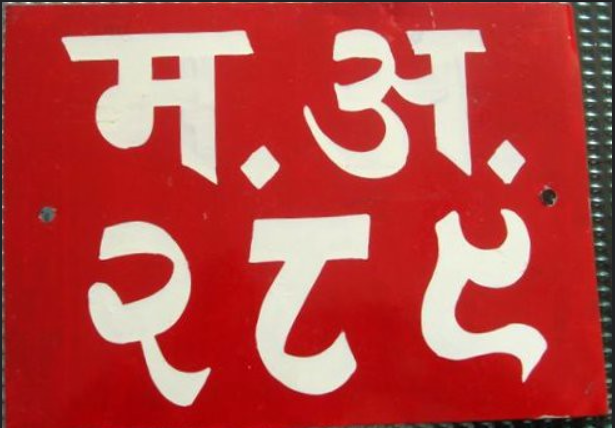 म. अ.
२८५